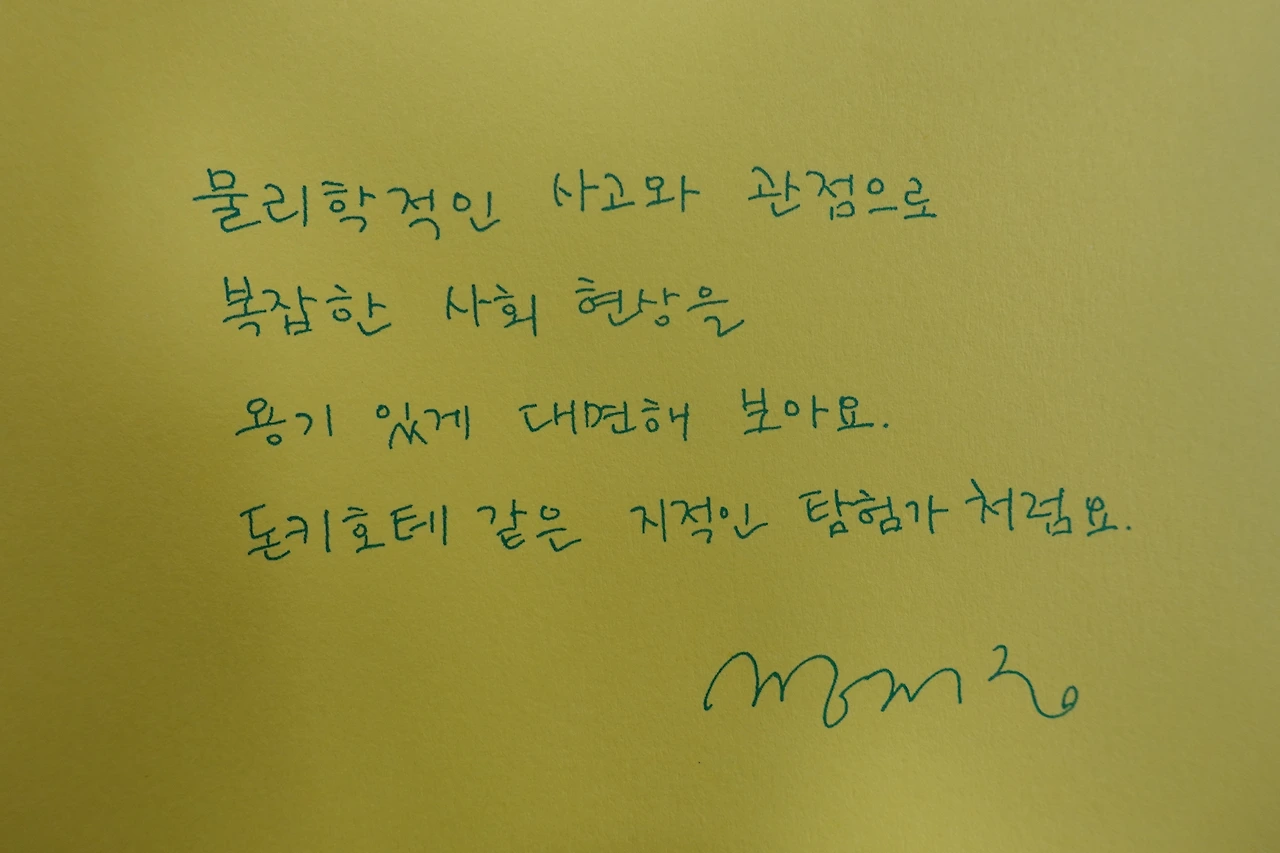 물리학적인 사고와 관점으로
복잡한 사회 현상을
용기 있게 대면해 보아요.
돈키호테 같은 지적인 탐험가 처럼요.